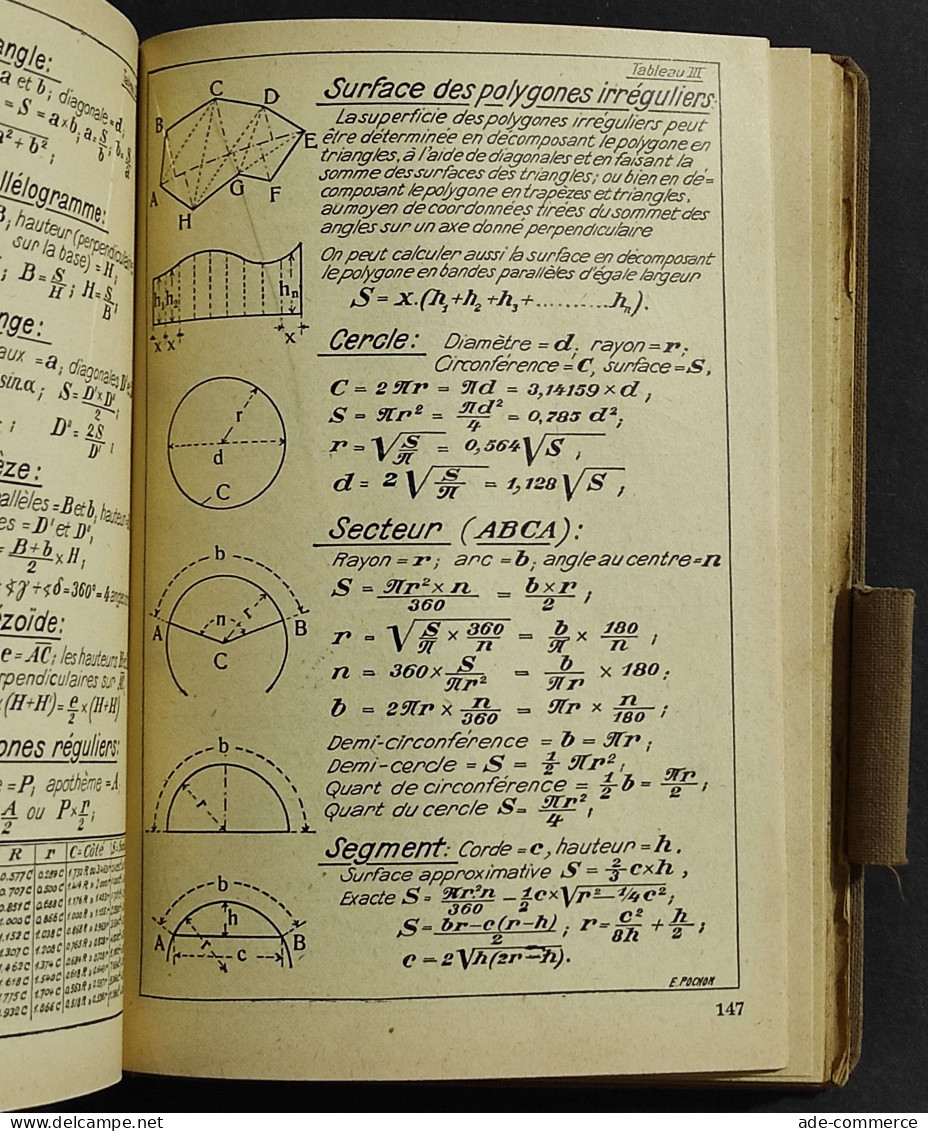 angle:
a et b; diagonale = d;
= S = a×b; a = S/b; b = S/a
a² + b²;
llélogramme:
B; hauteur (perpendiculaire
sur la base) = H;
; B = S/H; H = S/B;
nge:
aux = a, diagonales D'
sin α; S = D'×D'/2;
; D' = 2S/D';
èze:
allèles = B et b,
es = D' et D',
= B+b/2 × H,
∢γ + ∢δ = 360° = 4
zoïde:
e = AC; les hauteurs
rpendiculaires sur
(H+H') = e/2 × (H+H)
ones réguliers:
e = P, apothème = A
A/2 ou P×r/2;
R r C=Côté
0.577 C 0.289 C
0.707 C 0.500 C
0.851 C 0.688 C
1.000 C 0.866 C
1.152 C 1.038 C
1.307 C 1.208 C
1.462 C 1.374 C
1.618 C 1.540 C
1.775 C 1.704 C
1.932 C 1.866 C
Tableau III
Surface des polygones irréguliers:
La superficie des polygones irréguliers peut
être déterminée en décomposant le polygone en
triangles, à l'aide de diagonales et en faisant la
somme des surfaces des triangles; ou bien en dé=
composant le polygone en trapèzes et triangles,
au moyen de coordonnées tirées du sommet des
angles sur un axe donné perpendiculaire
A B C D E F G H
On peut calculer aussi la surface en décomposant
le polygone en bandes parallèles d'égale largeur
S = x.(h₁+h₂+h₃+...........hₙ).
h₁ h₂ hₙ
x x x
Cercle: Diamètre = d; rayon = r;
Circonférence = C, surface = S,
C = 2πr = πd = 3,14159 × d,
S = πr² = πd²/4 = 0,785 d²;
r = √S/π = 0,564√S,
d = 2√S/π = 1,128√S;
r
d
C
Secteur (ABCA):
Rayon = r; arc = b; angle au centre = n
S = πr²×n/360 = b×r/2;
r = √S/π × 360/n = b/π × 180/n;
n = 360 × S/πr² = b/πr × 180;
b = 2πr × n/360 = πr × n/180;
b
n r
A B
C
Demi-circonférence = b = πr;
Demi-cercle = S = ½ πr²;
Quart de circonférence = ½ b = πr/2;
Quart du cercle S = πr²/4;
b
r
Segment: Corde = c, hauteur = h.
Surface approximative S = ⅔ c×h,
Exacte S = πr²n/360 - ½c×√r²-¼c²;
S = br-c(r-h)/2; r = c²/8h + h/2;
c = 2√h(2r-h).
b
h
A B
r
c
E. POCHON
147
ade-commerce